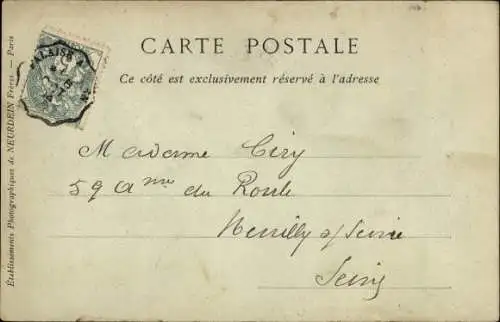 CARTE POSTALE
Ce côté est exclusivement réservé à l'adresse
FALAISE A
Madame Céry
59 Ame du Roule
Neuilly s/ Seine
Seine
Établissements Photographiques de NEURDEIN Frères. — Paris